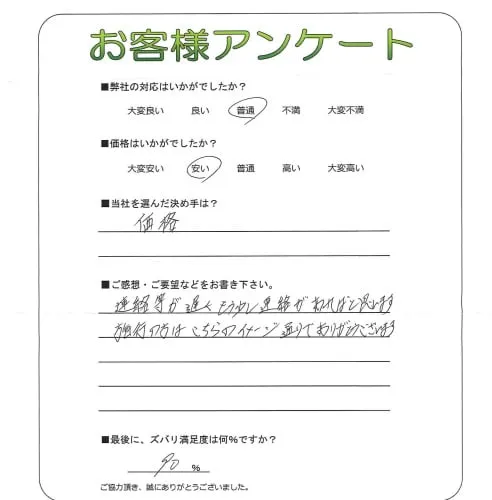 お客様アンケート
■弊社の対応はいかがでしたか？
大変良い 良い 普通 不満 大変不満
■価格はいかがでしたか？
大変安い 安い 普通 高い 大変高い
■当社を選んだ決め手は？
価格
■ご感想・ご要望などをお書き下さい。
連絡等が遅く もう少し連絡があればと思います
施術の方は こちらのイメージ通りでありがとうございます
■最後に、ズバリ満足度は何％ですか？
90 ％
ご協力頂き、誠にありがとうございました。